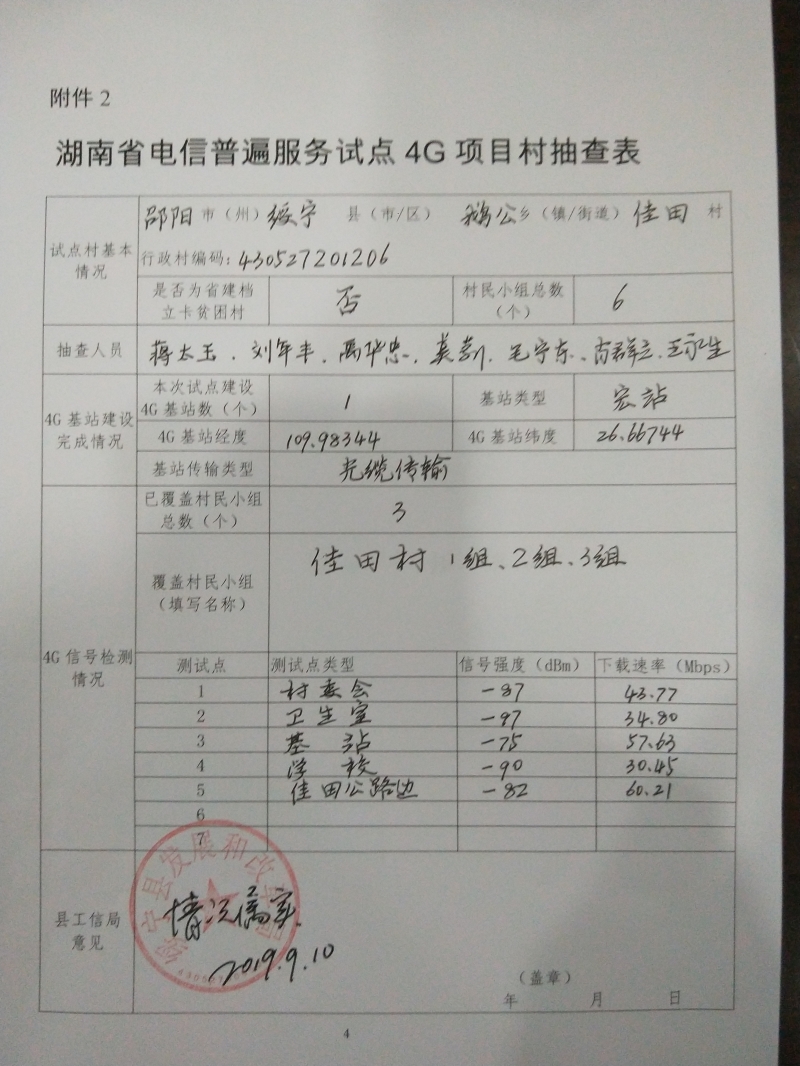 附件 2
湖南省电信普遍服务试点 4G 项目村抽查表
试点村基本情况
邵阳市（州）绥宁 县（市/区） 鹅公乡（镇/街道）佳田 村
行政村编码：430527201206
是否为省建档立卡贫困村 否 村民小组总数（个） 6
抽查人员
4G 基站建设完成情况
本次试点建设4G 基站数（个） 1 基站类型 宏站
4G 基站经度 109.98344 4G 基站纬度 26.66744
基站传输类型 光缆传输
4G 信号检测情况
已覆盖村民小组总数（个） 3
覆盖村民小组（填写名称） 佳田村 1组、2组、3组
测试点 测试点类型 信号强度（dBm） 下载速率（Mbps）
1 村委会 -87 43.77
2 卫生室 -97 34.80
3 基站 -75 57.63
4 学校 -90 30.45
5 佳田公路边 -82 60.21
6
7
县工信局意见
宁县发展和改
情况属实.
2019.9.10
（盖章）
年 月 日
4